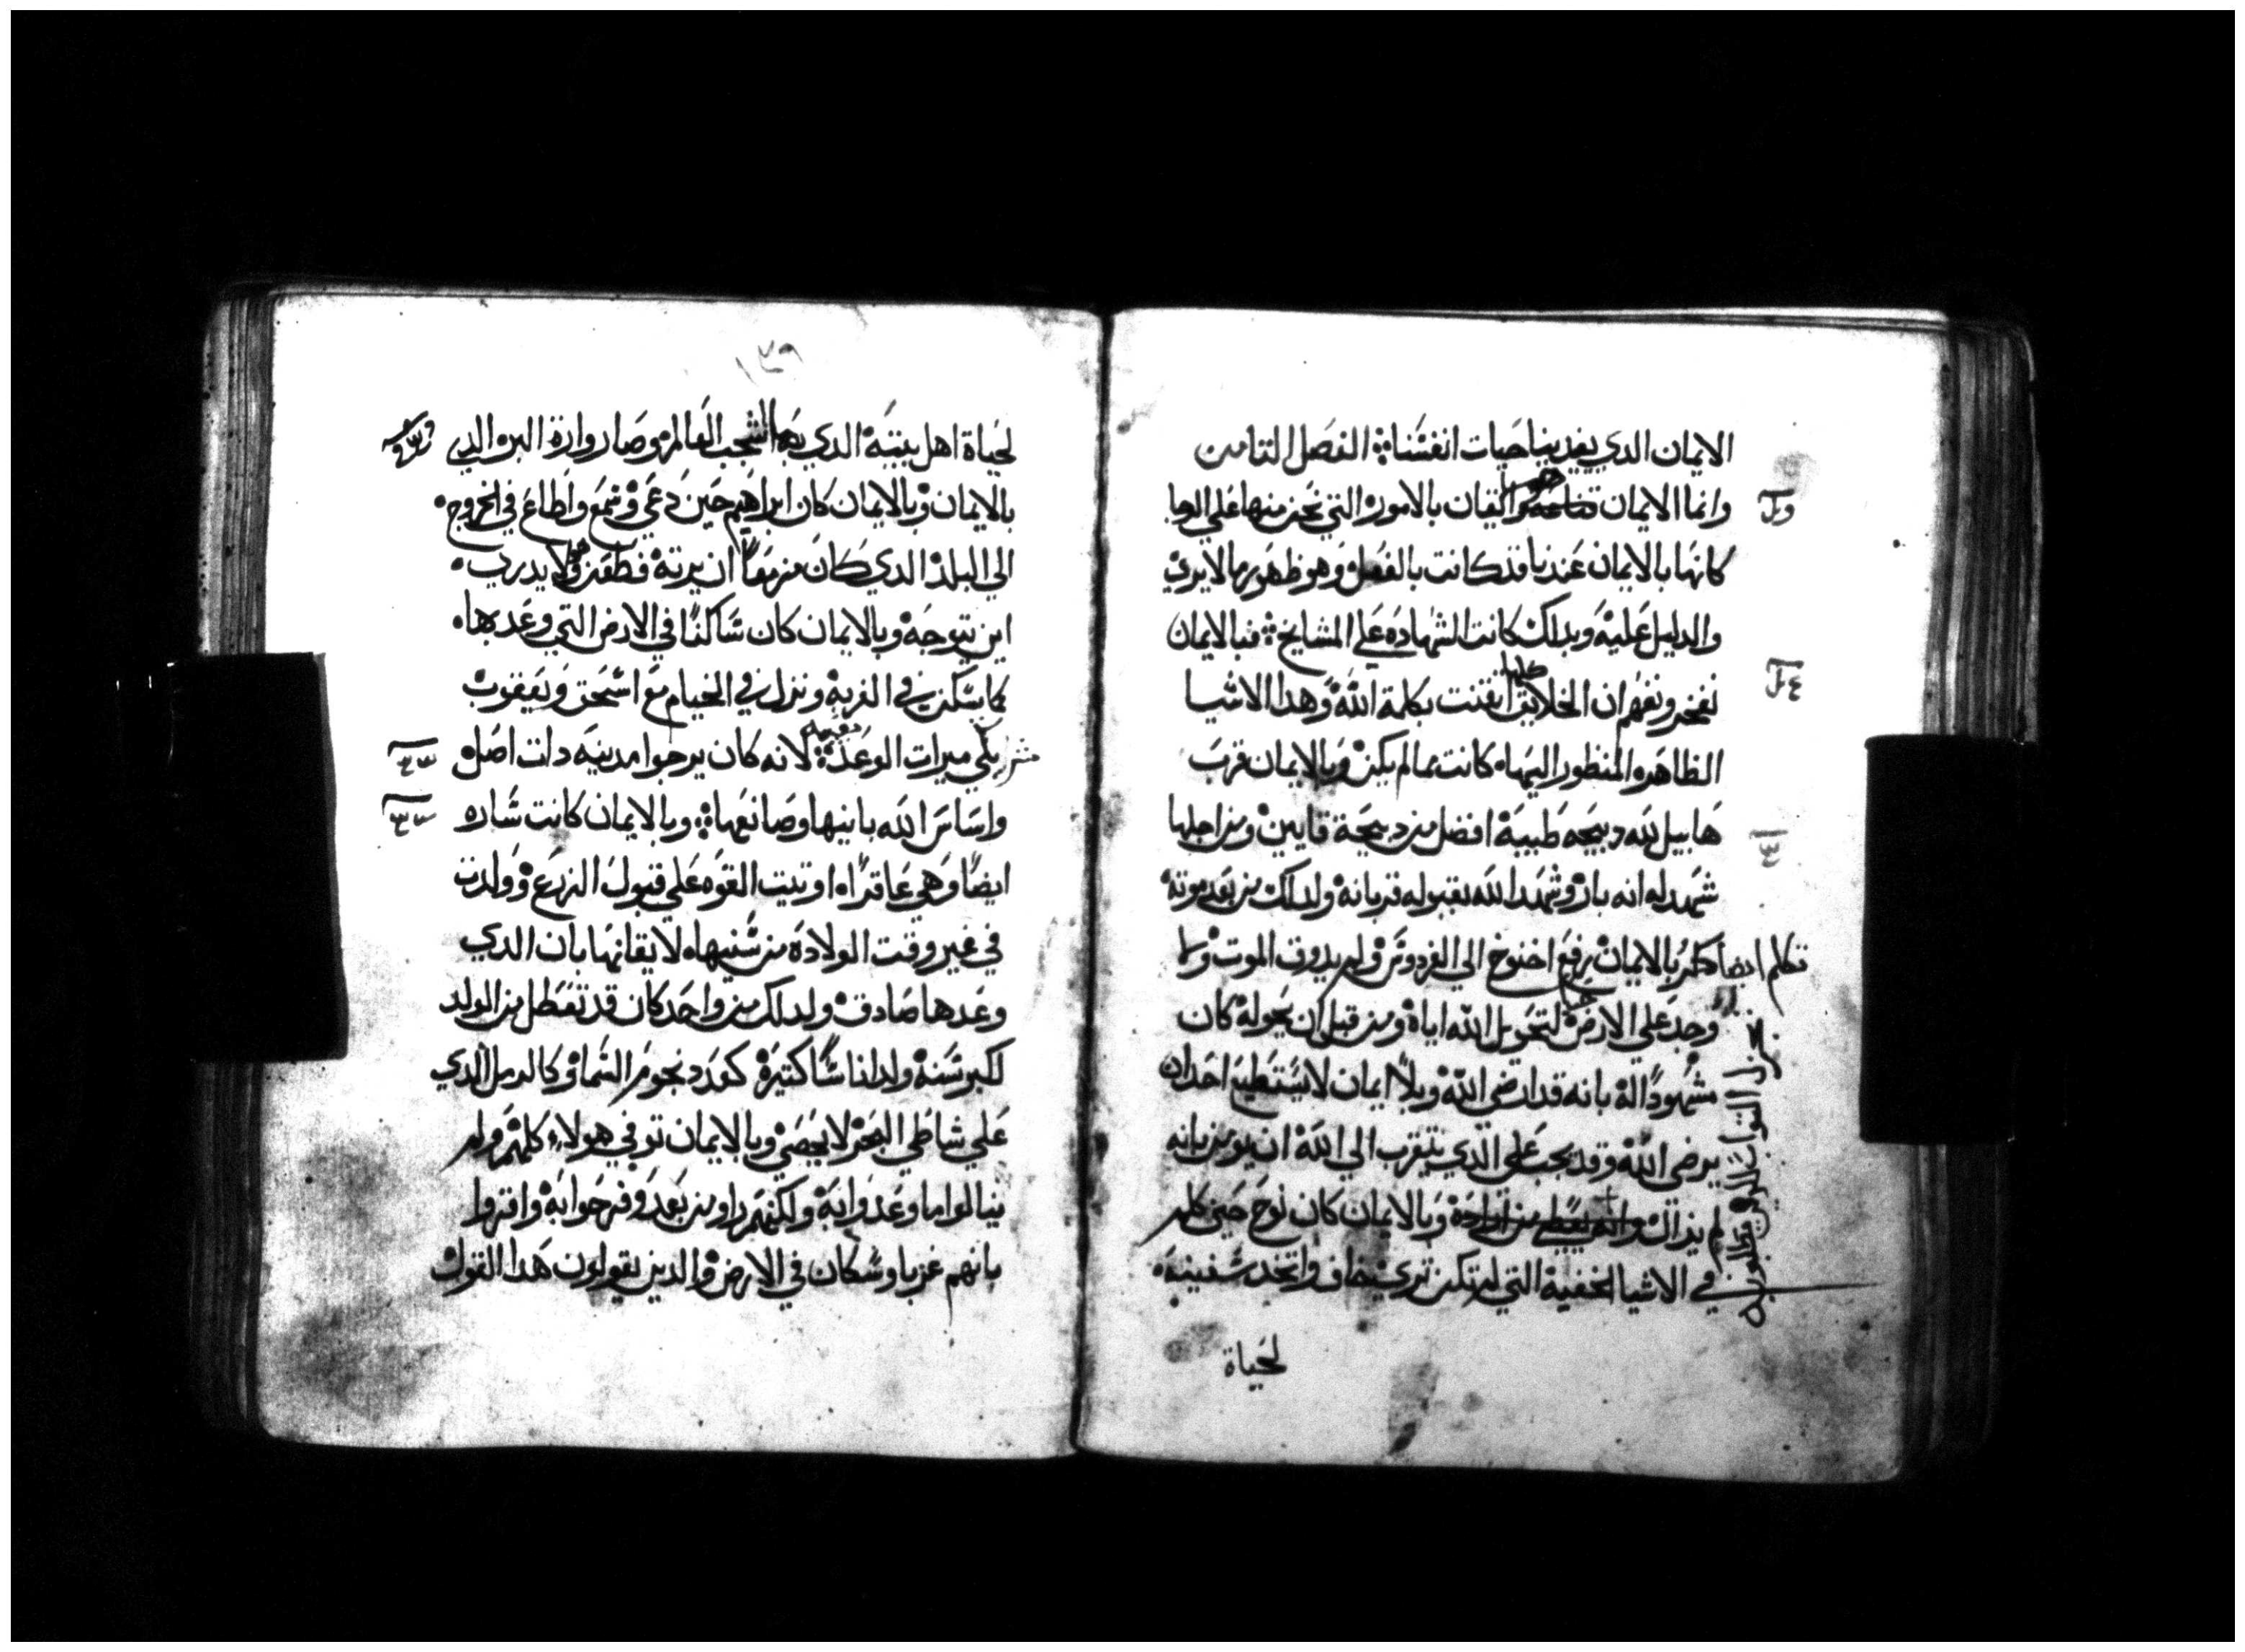 الايمان الدي يفيدنا حيات انفسنا الفصل التامن
وانما الايمان هو ايقان بالامور التي نحن منها علي الرجا
كانها بالايمان عندنا قد كانت بالفعل وهو ظهور ما لا يري
والدليل عليه وبدلك كانت الشهاده علي المشايخ فبالايمان
نفخر ونفهم ان الخلايق كلها اتقنت بكلمة الله وهدا الاشيا
الظاهره المنظور اليها كانت مما لم يكن وبالايمان قرب
هابيل لله دبيحه طيبة افضل من دبيحة قايين ومن اجلها
شهد له انه بار وشهد الله بقبوله قربانه ولدلك من بعد موته
تكلم ايضا وبالايمان رفع اخنوخ الي الفردوس ولم يدوق الموت وما
وجد علي الارض لتحويل الله اياه ومن قبل ان يحوله كان
مشهودا له بانه قد ارضي الله وبلا ايمان لا يستطيع احد ان
يرضي الله وقد يجب علي الدي يتقرب الي الله ان يومن بانه
لم يزال وبالايمان كان نوح حين كلم
في الاشيا الخفية التي لم تكن تري خاف واتخد سفينه
لحياة
يجزل التواب للدين يطلبونه
١٣٩
لحياة اهل بيته الدي بها شجب العالم وصار وارة البر الدي
بالايمان وبالايمان كان ابراهيم حين دعي وسمع واطاع في الخروج
الي البلد الدي كان مزمعا ان يرته فظعن ولا يدري
اين يتوجه وبالايمان كان ساكنا في الارض التي وعد بها
كما يسكن في الغربه ونزل في الخيام مع اسحق ويعقوب
ميرات الوعد لانه كان يرجوا مدينه دات اصل
واساس الله بانيها وصانعها وبالايمان كانت ساره
ايضا وهي عاقرا اوتيت القوه علي قبول الزرع وولدت
في غير وقت الولادة من سنيها لايقانها بان الدي
وعدها صادق ولدلك من واحد كان قد تعطل من الولد
لكبر سنه ولد اناسا كتيرة كعدد نجوم السما وكالرمل الدي
علي شاطي البحر لا يحصي وبالايمان توفي هولاء كلهم ولم
ينالوا ما وعدوا به ولكنهم راوه من بعد وفرحوا به واقروا
بانهم غربا وسكان في الارض والدين يقولون هدا القول